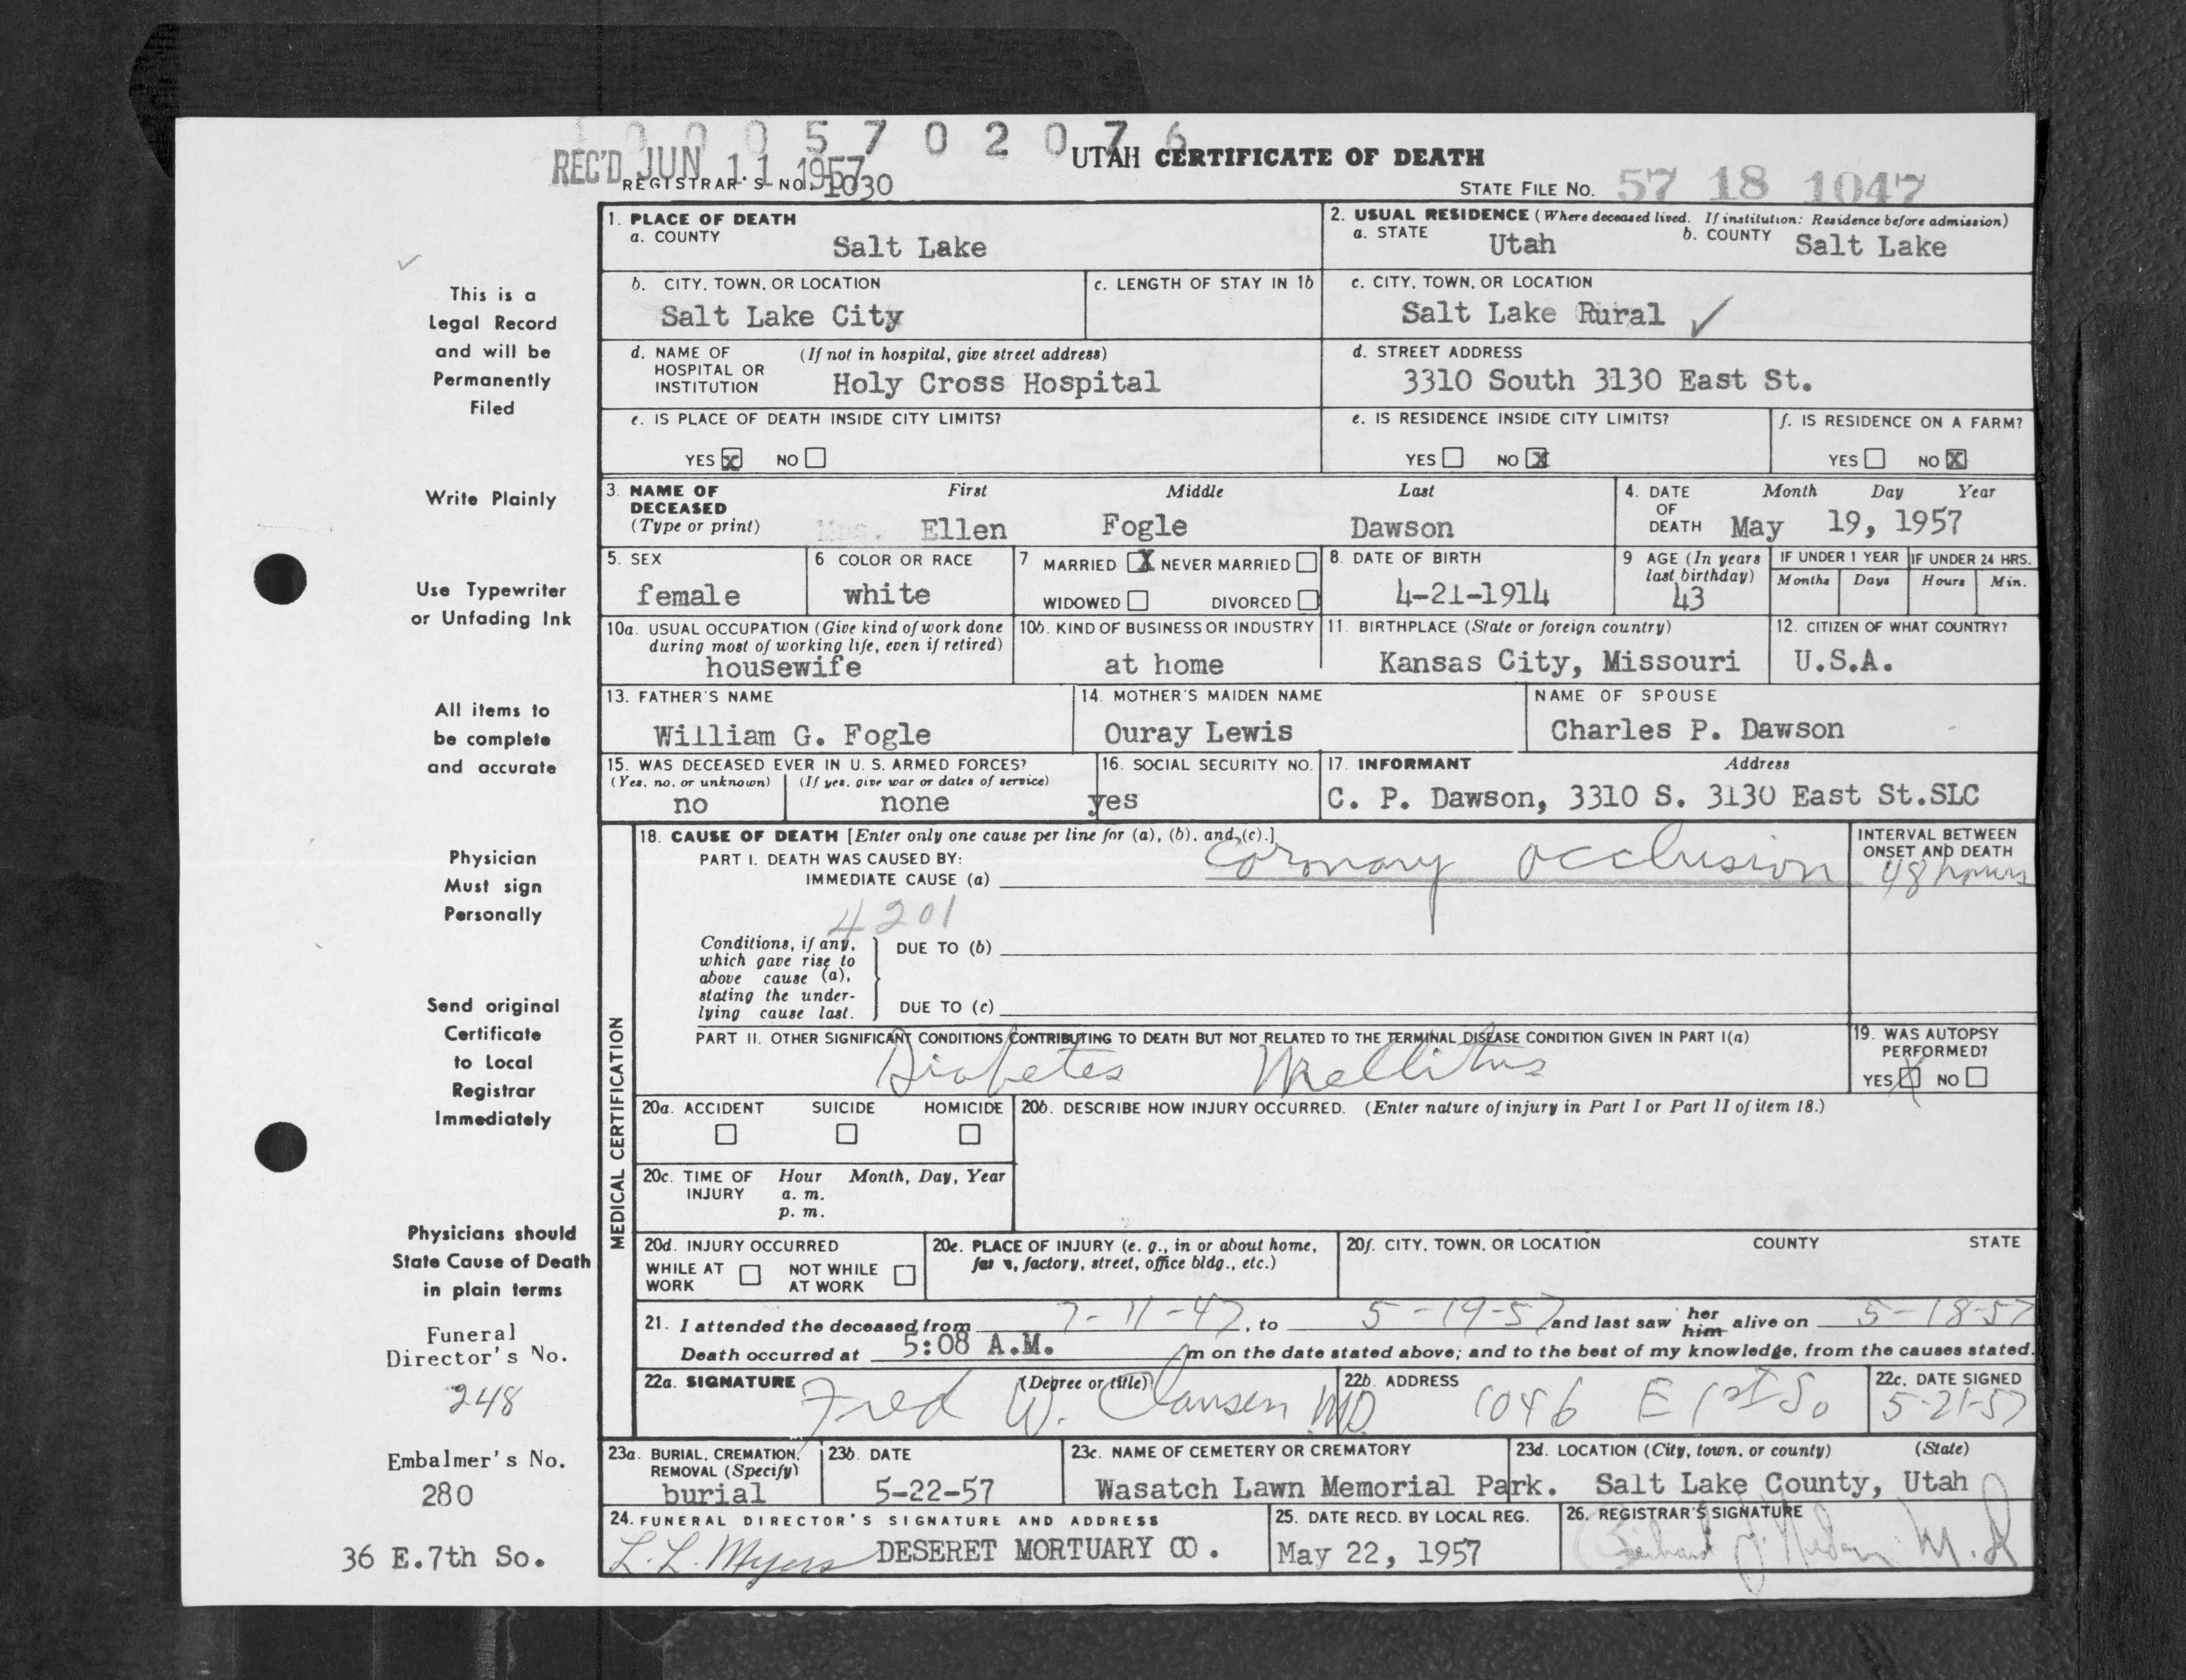 10005702076
REC'D JUN 11 1957
UTAH CERTIFICATE OF DEATH
REGISTRAR'S NO. 1030
STATE FILE NO. 57 18 1047
This is a
Legal Record
and will be
Permanently
Filed
Write Plainly
Use Typewriter
or Unfading Ink
All items to
be complete
and accurate
Physician
Must sign
Personally
Send original
Certificate
to Local
Registrar
Immediately
Physicians should
State Cause of Death
in plain terms
Funeral
Director's No.
248
Embalmer's No.
280
36 E.7th So.
1. PLACE OF DEATH
a. COUNTY
Salt Lake
2. USUAL RESIDENCE (Where deceased lived. If institution: Residence before admission)
a. STATE Utah b. COUNTY Salt Lake
b. CITY, TOWN, OR LOCATION
Salt Lake City
c. LENGTH OF STAY IN 1b
c. CITY, TOWN, OR LOCATION
Salt Lake Rural ✓
d. NAME OF HOSPITAL OR INSTITUTION (If not in hospital, give street address)
Holy Cross Hospital
d. STREET ADDRESS
3310 South 3130 East St.
e. IS PLACE OF DEATH INSIDE CITY LIMITS?
YES X NO
e. IS RESIDENCE INSIDE CITY LIMITS?
YES NO X
f. IS RESIDENCE ON A FARM?
YES NO X
3. NAME OF DECEASED (Type or print)
First Middle Last
Mrs. Ellen Fogle Dawson
4. DATE OF DEATH Month Day Year
May 19, 1957
5. SEX
female
6. COLOR OR RACE
white
7. MARRIED X NEVER MARRIED
WIDOWED DIVORCED
8. DATE OF BIRTH
4-21-1914
9 AGE (In years last birthday)
43
IF UNDER 1 YEAR
Months Days
IF UNDER 24 HRS.
Hours Min.
10a. USUAL OCCUPATION (Give kind of work done during most of working life, even if retired)
housewife
10b. KIND OF BUSINESS OR INDUSTRY
at home
11. BIRTHPLACE (State or foreign country)
Kansas City, Missouri
12. CITIZEN OF WHAT COUNTRY?
U.S.A.
13. FATHER'S NAME
William G. Fogle
14. MOTHER'S MAIDEN NAME
Ouray Lewis
NAME OF SPOUSE
Charles P. Dawson
15. WAS DECEASED EVER IN U. S. ARMED FORCES?
(Yes, no, or unknown) (If yes, give war or dates of service)
no none
16. SOCIAL SECURITY NO.
yes
17. INFORMANT Address
C. P. Dawson, 3310 S. 3130 East St.SLC
MEDICAL CERTIFICATION
18. CAUSE OF DEATH [Enter only one cause per line for (a), (b), and (c).]
PART I. DEATH WAS CAUSED BY:
IMMEDIATE CAUSE (a) Coronary Occlusion
INTERVAL BETWEEN ONSET AND DEATH
48 hours
4201
Conditions, if any, which gave rise to above cause (a), stating the underlying cause last.
DUE TO (b)
DUE TO (c)
PART II. OTHER SIGNIFICANT CONDITIONS CONTRIBUTING TO DEATH BUT NOT RELATED TO THE TERMINAL DISEASE CONDITION GIVEN IN PART I(a)
Diabetes Mellitus
19. WAS AUTOPSY PERFORMED?
YES X NO
20a. ACCIDENT SUICIDE HOMICIDE
20b. DESCRIBE HOW INJURY OCCURRED. (Enter nature of injury in Part I or Part II of item 18.)
20c. TIME OF INJURY Hour Month, Day, Year
a. m.
p. m.
20d. INJURY OCCURRED
WHILE AT WORK NOT WHILE AT WORK
20e. PLACE OF INJURY (e. g., in or about home, farm, factory, street, office bldg., etc.)
20f. CITY, TOWN, OR LOCATION COUNTY STATE
21. I attended the deceased from 7-11-47, to 5-19-57 and last saw her him alive on 5-18-57
Death occurred at 5:08 A.M. m on the date stated above; and to the best of my knowledge, from the causes stated.
22a. SIGNATURE (Degree or title)
Fred W. Clausen MD
22b. ADDRESS
1046 E 1st So
22c. DATE SIGNED
5-21-57
23a. BURIAL, CREMATION, REMOVAL (Specify)
burial
23b. DATE
5-22-57
23c. NAME OF CEMETERY OR CREMATORY
Wasatch Lawn Memorial Park.
23d. LOCATION (City, town, or county) (State)
Salt Lake County, Utah
24. FUNERAL DIRECTOR'S SIGNATURE AND ADDRESS
L. L. Myers DESERET MORTUARY CO.
25. DATE RECD. BY LOCAL REG.
May 22, 1957
26. REGISTRAR'S SIGNATURE
M.D